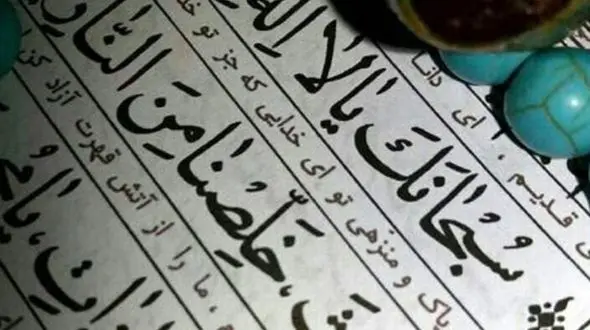 قدیم ، ای دانا
سُبْحٰانَكَ يٰا لٰا اِلٰهَ
پاک و منزهی تو ای خدایی که جز تو
خَلِّصْنٰا مِنَ النّٰارِ
، ما را از آتش قهرت آزاد
اتِ، يٰا